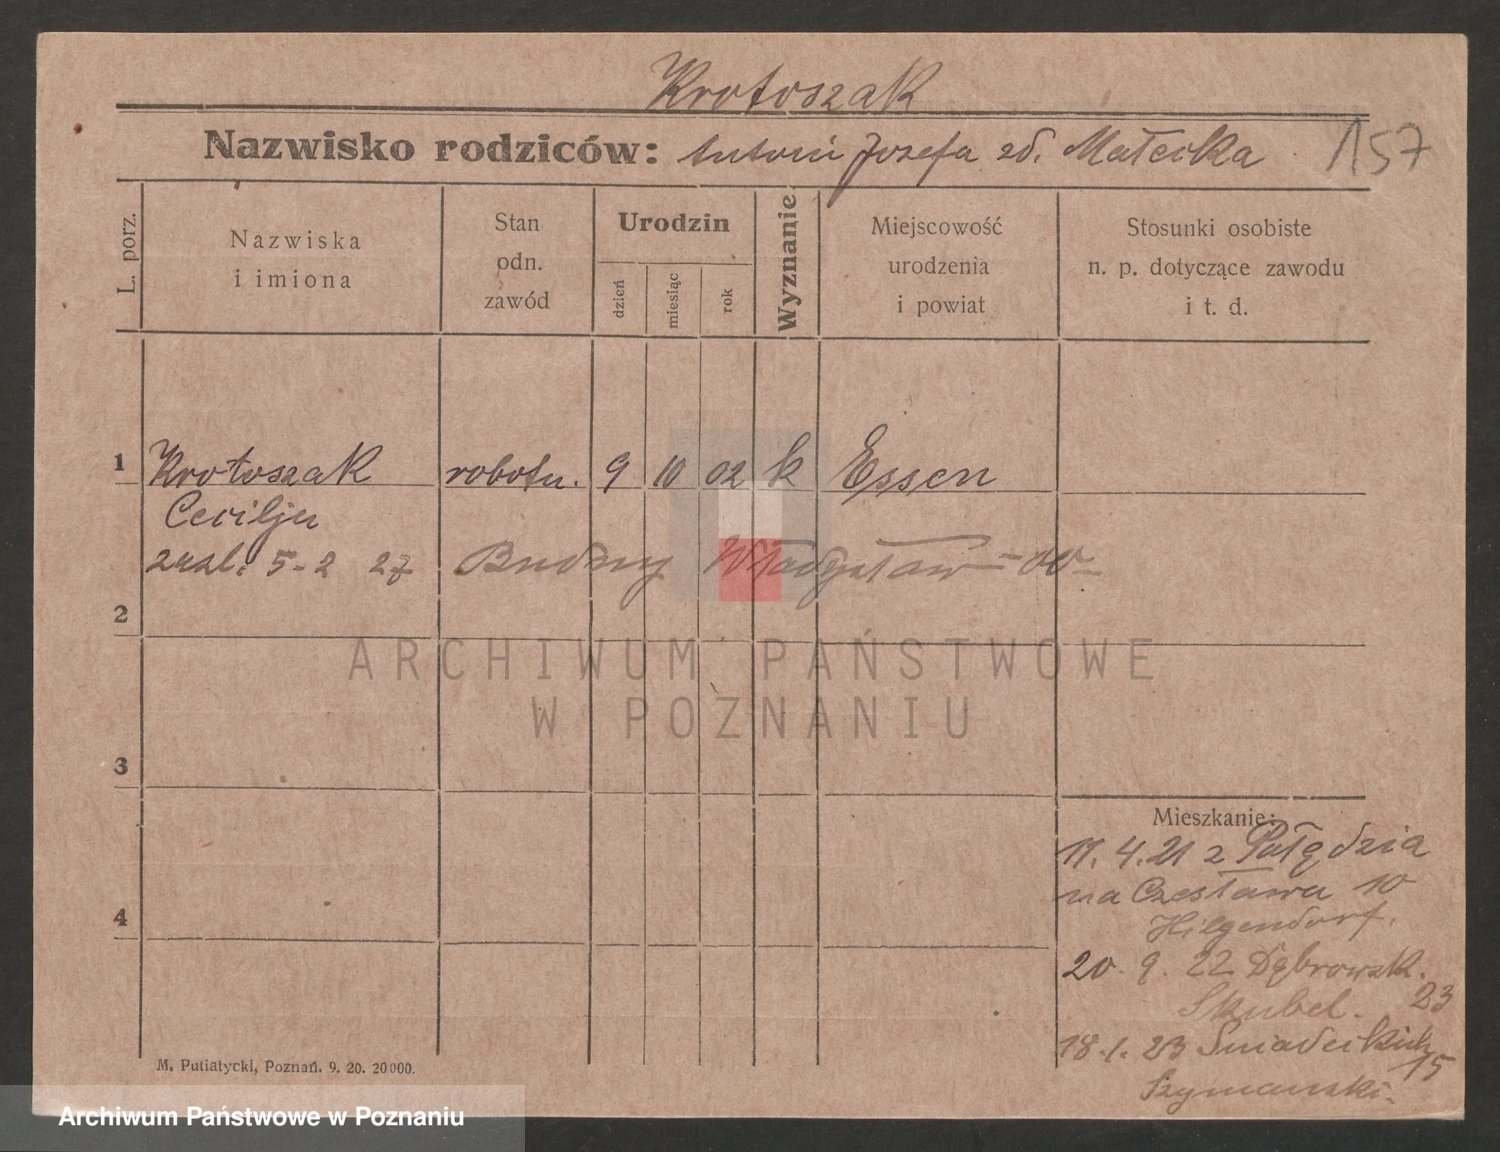 Krotoszak
Nazwisko rodziców: Antoni Józefa zd. Małecka 157
L. porz.
Nazwiska
i imiona
Stan
odn.
zawód
Urodzin
dzień
miesiąc
rok
Wyznanie
Miejscowość
urodzenia
i powiat
Stosunki osobiste
n. p. dotyczące zawodu
i t. d.
1 Krotoszak robotn. 9 10 02 k Essen
Cecilja
5-2 27 Budny Władysław
2
ARCHIWUM PAŃSTWOWE
W POZNANIU
3
Mieszkanie:
11. 4. 21 z Pałędzia
na Czesława 10
4
Hilgendorf.
20. 9. 22 Dąbrowsk.
Skubel. 23
18. 1. 23 Śniadeckich
15
Szymanski.
M. Putiatycki, Poznań. 9. 20. 20000.
Archiwum Państwowe w Poznaniu